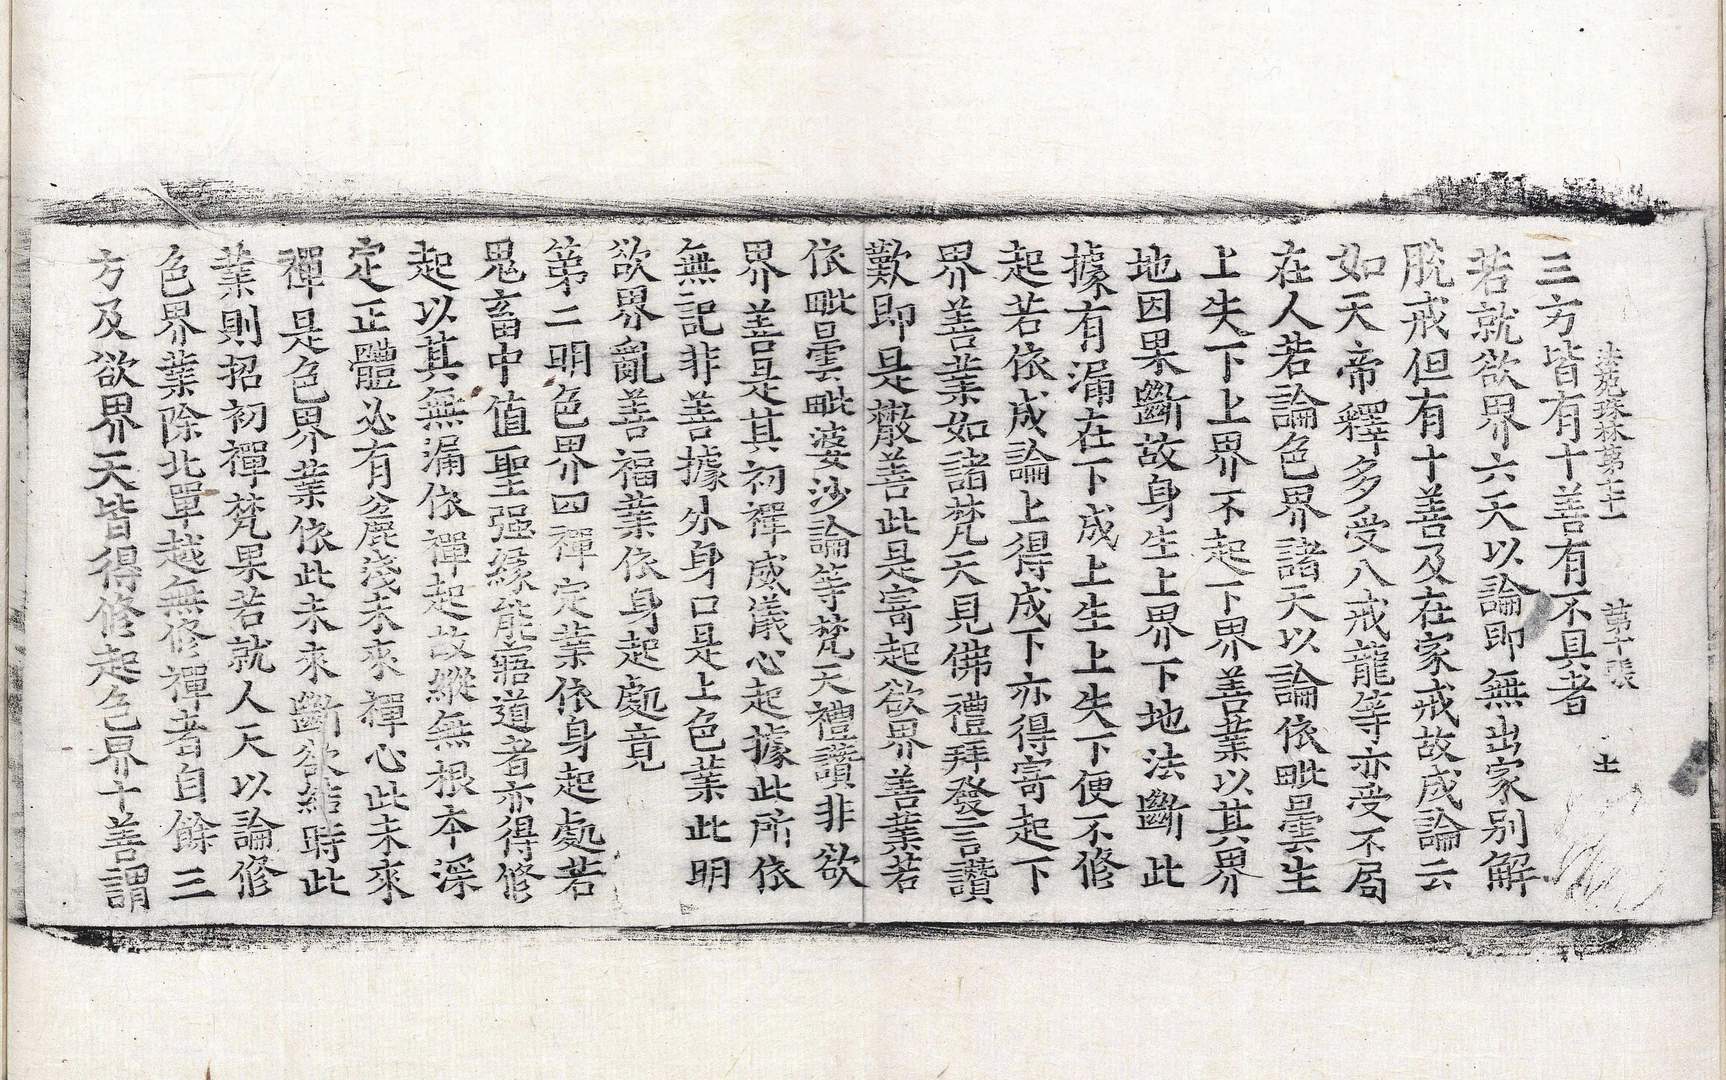 法苑珠林第七十一 第十張 士
三方皆有十善有不具者
若就欲界六天以論即無出家別解
脫戒但有十善及在家戒故成論云
如天帝釋多受八戒龍等亦受不局
在人若論色界諸天以論依毗曇生
上失下上界不起下界善業以其界
地因果斷故身生上界下地法斷此
據有漏在下成上生上失下便不修
起若依成論上得成下亦得寄起下
界善業如諸梵天見佛禮拜發言讚
歎即是散善此是寄起欲界善業若
依毗曇毗婆沙論等梵天禮讚非欲
界善是其初禪威儀心起據此所依
無記非善據外身口是上色業此明
欲界亂善福業依身起處竟
第二明色界四禪定業依身起處若
鬼畜中值聖强緣能寤道者亦得修
起以其無漏依禪起故縱無根本深
定正體必有麁淺未來禪心此未來
禪是色界業依此未來斷欲結時此
業則招初禪梵果若就人天以論修
色界業除北單越無修禪者自餘三
方及欲界天皆得修起色界十善謂